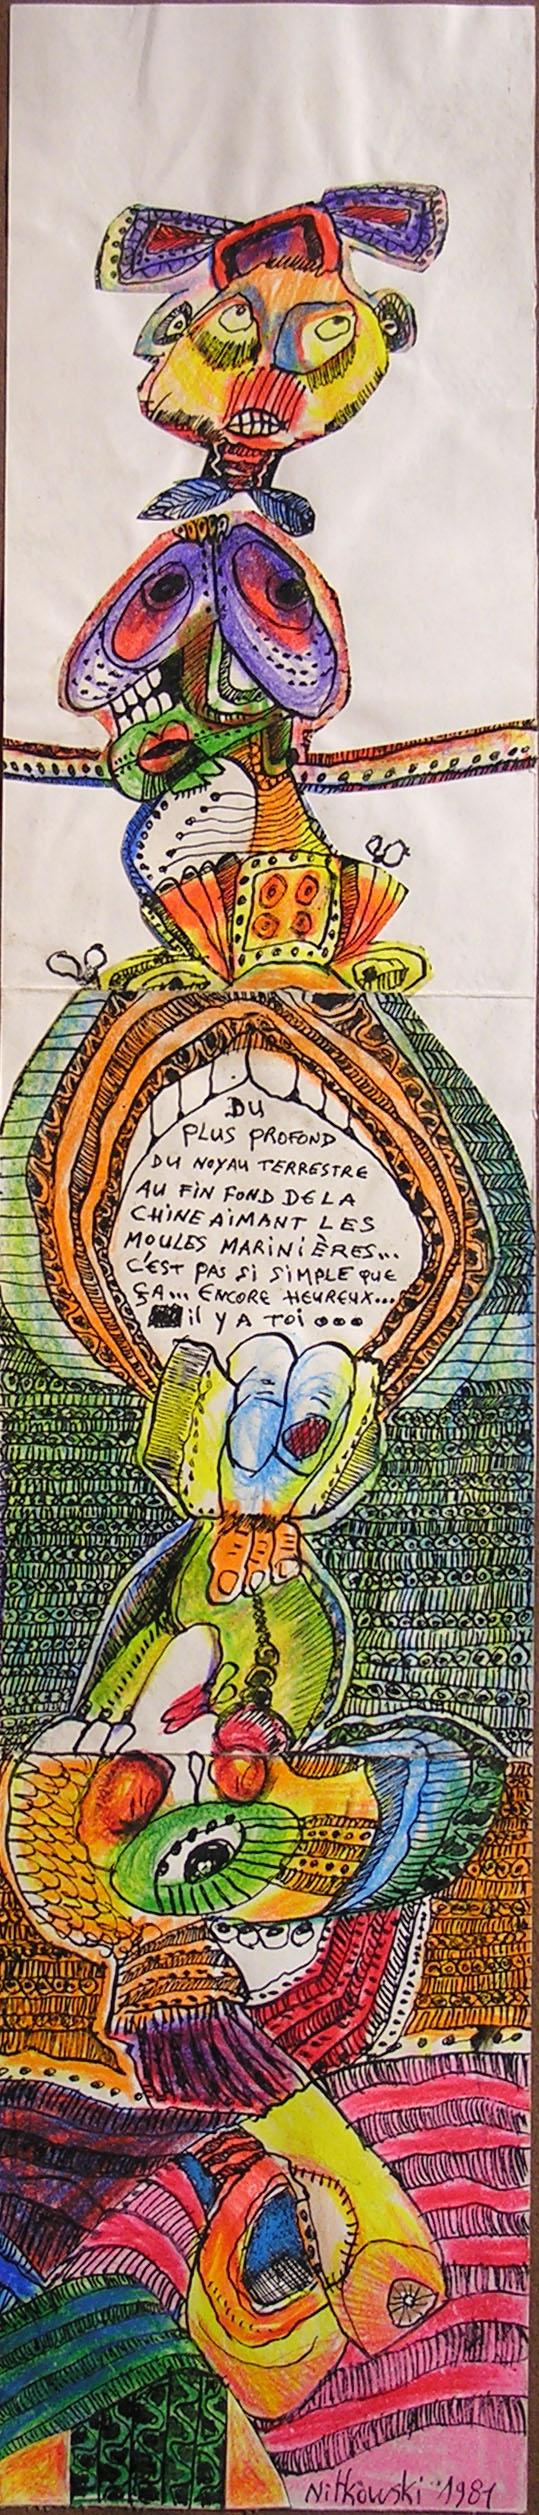 DU
PLUS PROFOND
DU NOYAU TERRESTRE
AU FIN FOND DE LA
CHINE AIMANT LES
MOULES MARINIÈRES...
C'EST PAS SI SIMPLE QUE
ÇA... ENCORE HEUREUX...
il Y A TOI ...
Nitkowski 1981